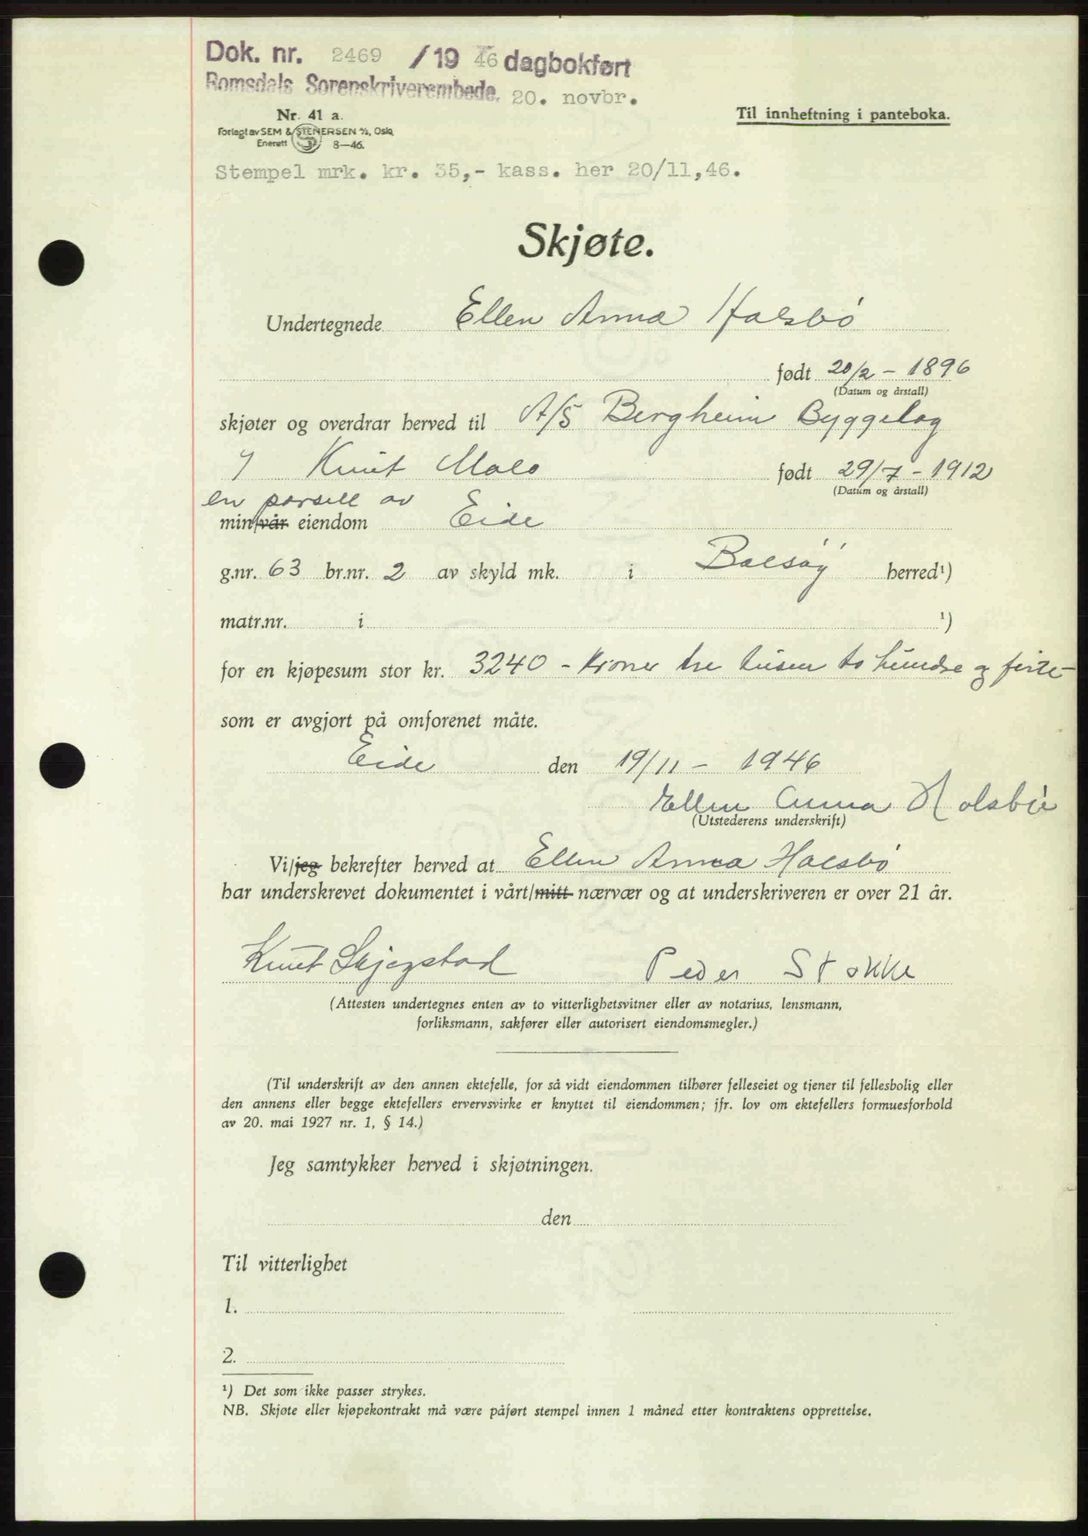 Dok. nr. 2469 /19 46 dagbokført
Romsdals Sorenskriverembede. 20. novbr.
Nr. 41 a.
Forlagt av SEM & STENERSEN A/S, Oslo
Enerett 8—46.
Til innheftning i panteboka.
Stempel mrk. kr. 35,- kass. her 20/11,46.
Skjøte.
Undertegnede Ellen Anna Halsbø
født 20/2 - 1896
(Datum og årstall)
skjøter og overdrar herved til A/S Bergheim Byggelag
Knut Malo født 29/7 - 1912
(Datum og årstall)
en parsell av
min/vår eiendom Eide
g.nr. 63 br.nr. 2 av skyld mk. i Bolsøy herred¹)
matr.nr. i ¹)
for en kjøpesum stor kr. 3240 - Kroner tre tusen to hundre og førti -
som er avgjort på omforenet måte.
Eide den 19/11 - 1946
Ellen Anna Halsbø
(Utstederens underskrift)
Vi/jeg bekrefter herved at Ellen Anna Halsbø
har underskrevet dokumentet i vårt/mitt nærvær og at underskriveren er over 21 år.
Knut Skjegstad Peder Stokke
(Attesten undertegnes enten av to vitterlighetsvitner eller av notarius, lensmann,
forliksmann, sakfører eller autorisert eiendomsmegler.)
(Til underskrift av den annen ektefelle, for så vidt eiendommen tilhører felleseiet og tjener til fellesbolig eller
den annens eller begge ektefellers ervervsvirke er knyttet til eiendommen; jfr. lov om ektefellers formuesforhold
av 20. mai 1927 nr. 1, § 14.)
Jeg samtykker herved i skjøtningen.
den
Til vitterlighet
1.
2.
¹) Det som ikke passer strykes.
NB. Skjøte eller kjøpekontrakt må være påført stempel innen 1 måned etter kontraktens opprettelse.